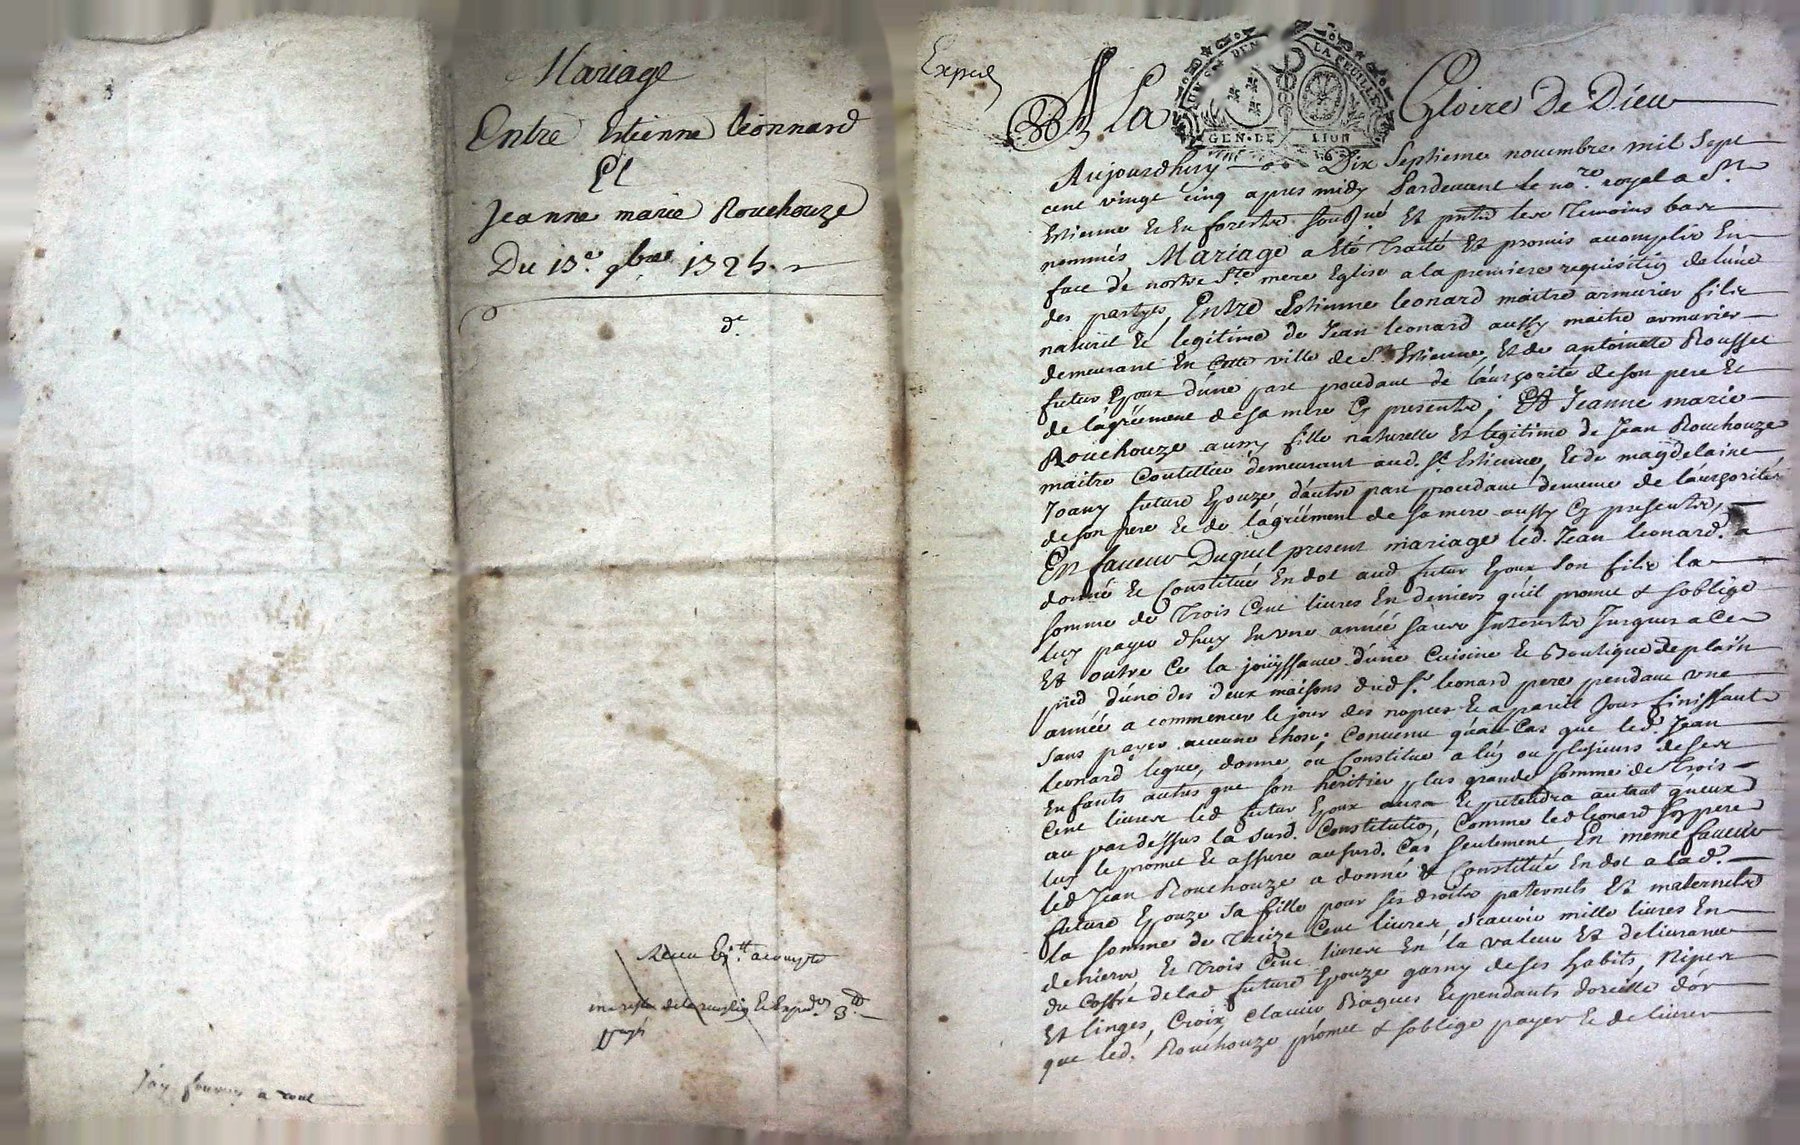 Mariage
Entre Estienne Léonnard
Et
Jeanne marie Rouchouze
Du 17e. 9bre 1725.
de
Receu 6tt. acompte
me reste de la Expedon 3tt
payé
J'ay fourny a
Exped
A La Gloire de Dieu
GEN. DE LION
LA FEUILLE
Aujourdhuy Dix Septieme nouembre mil sept
cent vingt cinq apres midy Pardeuant le nore. royal a St.
Estienne En forestz sousné Et pntz les Temoins bas
nommés Mariage a Eté Traité Et promis accomplir En
face de nostre Ste mere Eglise a la premiere requisition de lúne
des partyes, Entre Estienne Leonard maitre armurier fils
naturel Et legitime de Jean Leonard aussy maitre armurier
demeurant En Cette ville de St. Estienne, Et de antoinette Rousset
futur Epoux dúne part procedant de láuthorité de son pere Et
de lágréement de sa mere Cy presents; Et Jeanne marie
Rouchouze aussy fille naturelle Et legitime de Jean Rouchouze
maitre Coutellier demeurant aud. St Estienne, Et de magdelaine
Joany future Epouze dáutre part procedant de meme de láuthorité
de son pere Et de lágréement de sa mere aussy Cy presents,
En faueur Duquel present mariage led. Jean Leonard. a
donné Et Constitué En dot aud futur Epoux Son fils la
somme de Trois Cent liures En deniers quil promet & soblige
luy payer dhuy En une année sans Interests Jusques a Ce
Et outre Ce la joüyssance dúne Cuisine Et Boutique de plain
pied dúne des deux maisons dud Sr. Leonard pere pendant une
année a commencer le jour des nopces Et a pareil Jour finissant
sans payer aucune chose; Convenu quáu Cas que led. Jean
Leonard legue, donne, ou Constitue a lún ou plusieurs de ses
Enfants autres que son heritier plus grande somme de Trois
Cent liures led futur Epoux aura Et pretendra autant quéux
au par dessus la susd. Constitution, Comme led Leonard son pere
luy le promet Et assure ausurd. Cas seulement En meme faueur
led Jean Rouchouze a donné & Constitué En dot a lad.
future Epouze sa fille pour ses droits paternels Et maternels
la somme de Treize Cent liures, scauoir mille liures En
deniers Et Trois Cent liures En la valeur Et deliurance
du Coffre de lad future Epouze garny de ses habits, Nipes
Et linges, Croix, Clauier Bagues Et pendants doreille dór
que led. Rouchouze promet & soblige payer Et deliurer